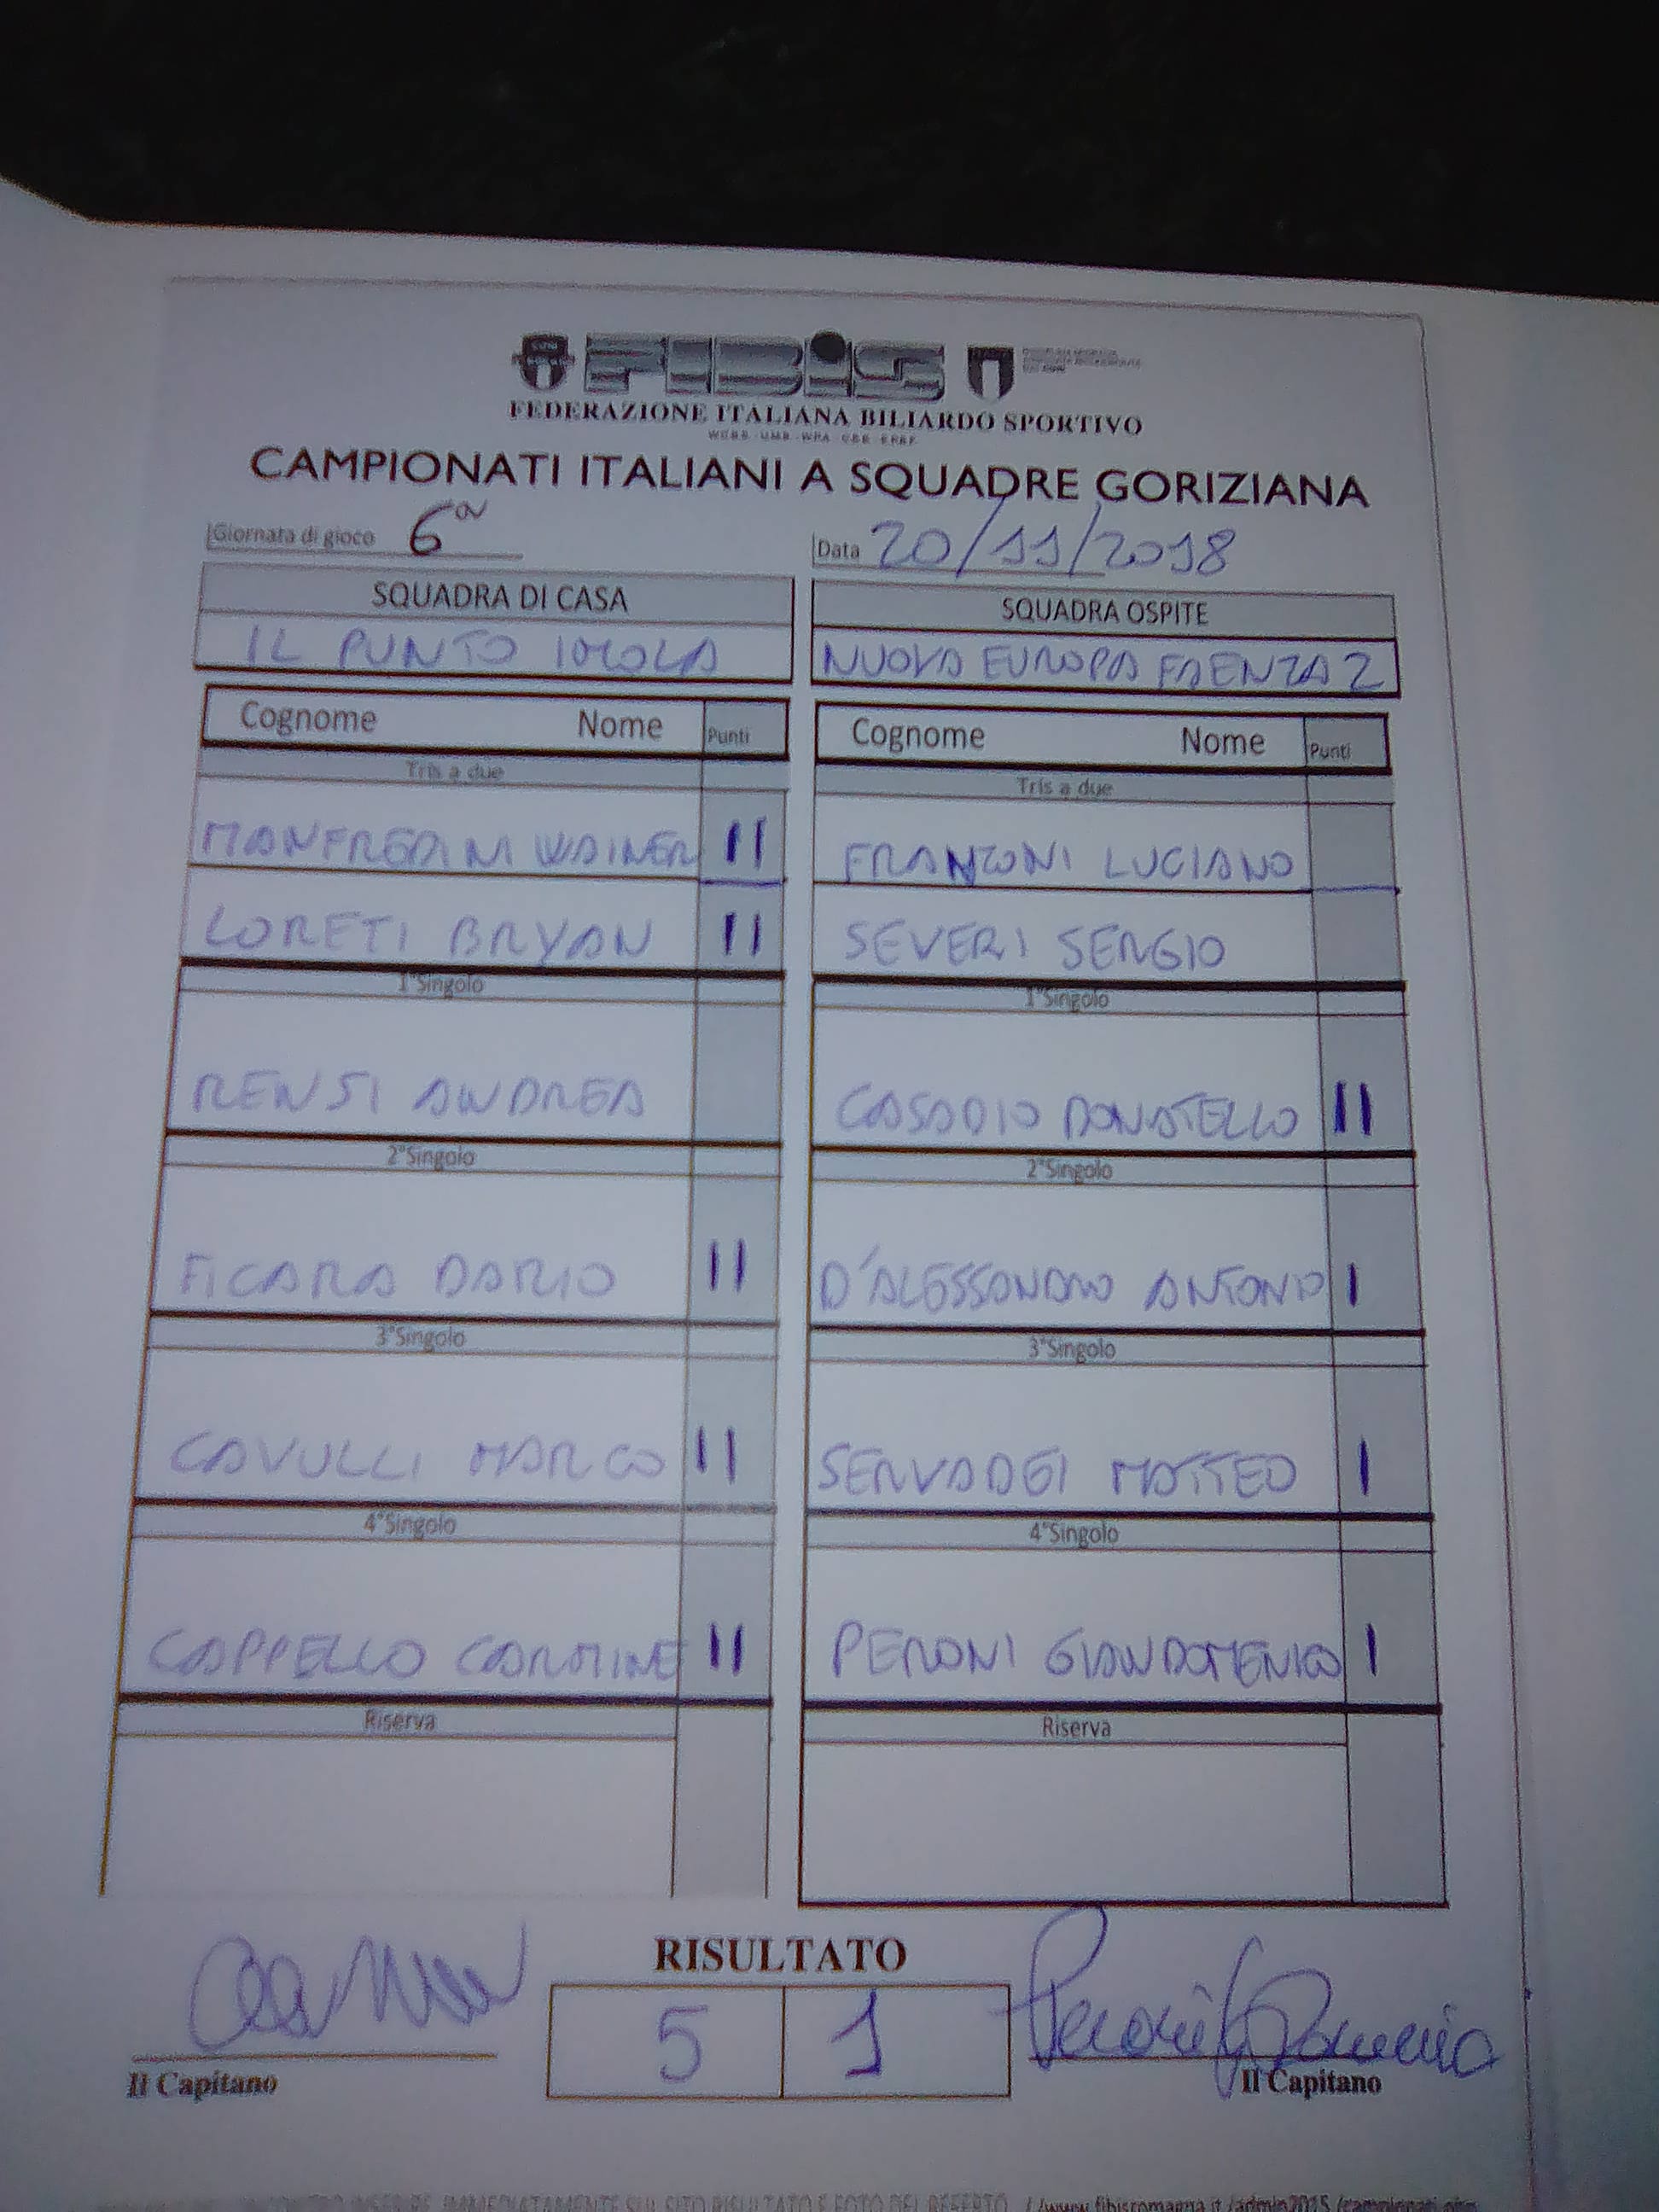 FIBIS
FEDERAZIONE ITALIANA BILIARDO SPORTIVO
CAMPIONATI ITALIANI A SQUADRE GORIZIANA
Giornata di gioco 6a Data 20/11/2018
SQUADRA DI CASA SQUADRA OSPITE
IL PUNTO IMOLA NUOVA EUROPA FAENZA 2
Cognome Nome Punti Cognome Nome Punti
Tris a due Tris a due
MANFREDINI WAINER II FRANZONI LUCIANO
LORETI BRYAN II SEVERI SERGIO
1°Singolo 1°Singolo
RENSI ANDREA CASADIO DONATELLO II
2°Singolo 2°Singolo
FICARA DARIO II D'ALESSANDRO ANTONIO I
3°Singolo 3°Singolo
CAVULLI MARCO II SERVADEI MATTEO I
4°Singolo 4°Singolo
CAPPELLO CARMINE II PERONI GIANDOMENICO I
Riserva Riserva
RISULTATO
5 1
Il Capitano Il Capitano
IMMEDIATAMENTE SUL SITO RISULTATO E FOTO DEL REFERTO